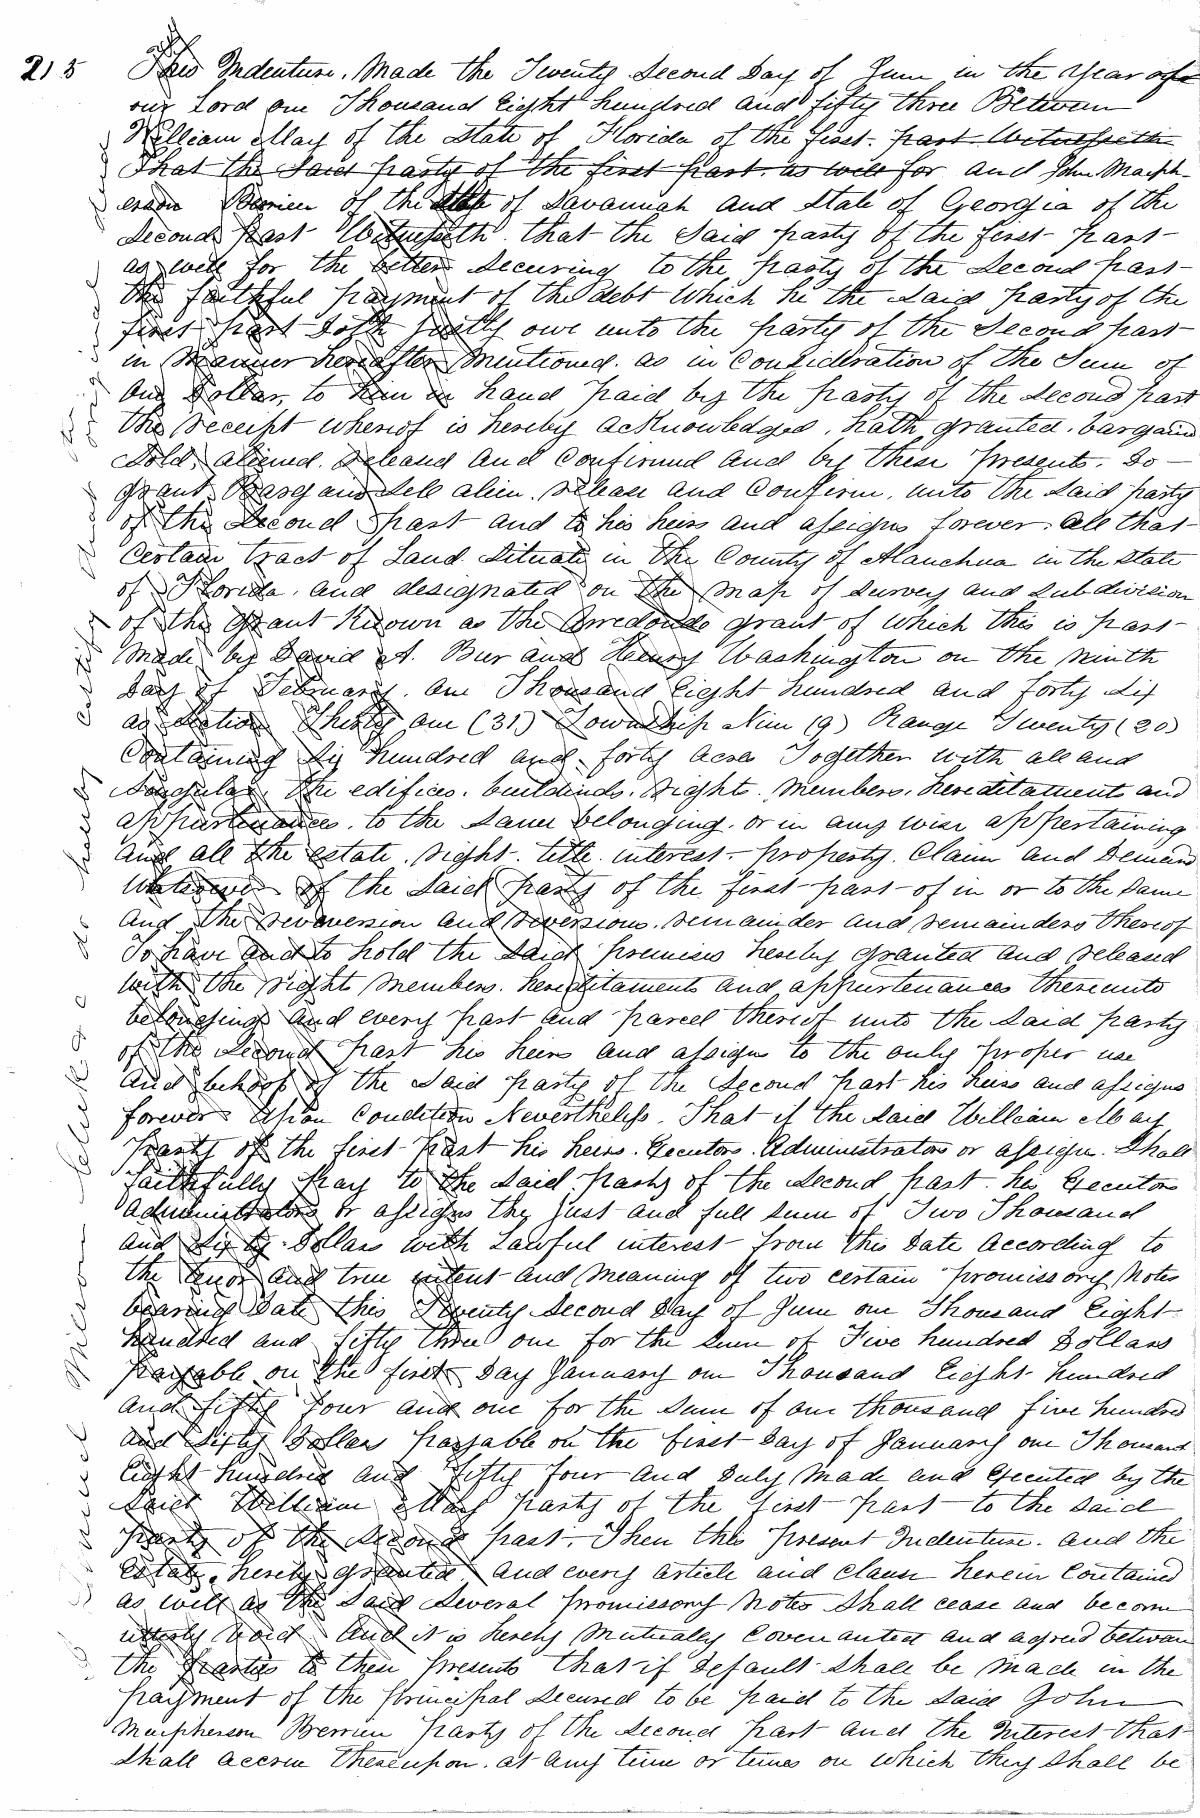 213
This Indenture. Made the Twenty Second Day of June in the Year of
our Lord one Thousand Eight hundred and fifty three Between
William May of the State of Florida of the first. part Witnesseth
That the Said party of the first part. as well for and John Macph-
erson Berrien of the of Savannah and State of Georgia of the
Second part Witnesseth. that the Said party of the first part
as well for the better Securing to the party of the Second part
the faithful payment of the debt Which he the Said party of the
first part Doth justly owe unto the party of the Second part
in Manner hereafter Mentioned. as in Consideration of the Sum of
One Dollar, to him in hand paid by the party of the Second part
the receipt whereof is hereby acknowledged, hath granted. bargaind
Sold, aliened. released and Confirmed and by these presents. Do
grant Bargain Sell alien. release and Confirm. unto the Said party
of the Second part and to his heirs and assigns forever. all that
Certain tract of Land Situate in the County of Alauchua in the State
of Florida. and designated on the map of Survey and Subdivision
of the grant Known as the Arredondo grant of which this is part
Made by David A. Bur and Henry Washington on the ninth
Day of February. one Thousand Eight hundred and forty Six
as Section Thirty one (31) Township Nine (9) Range Twenty (20)
Containing Six hundred and forty acres Together with all and
Singular. the edifices. buildinds. rights. members. hereditaments and
appurtenances. to the Same belonging. or in any wise appertaining
And all the estate. right. title. interest. property. Claim and Demand
Whatsoever of the Said party of the first part of in or to the Same
and the revoversion and reversions. remainder and remainders thereof
To have and to hold the Said premises hereby granted and released
with the right members. hereditaments and appurtenances thereunto
belonging and every part and parcel thereof unto the Said party
of the Second part his heirs and assigns to the only proper use
and behoof of the Said party of the Second part his heirs and assigns
forever Upon Condition Nevertheless. That if the Said William May
party of the first part his heirs. Executors. Administrators or assigns. Shall
faithfully pay to the Said party of the Second part. his Executors
Administrators or assigns the just and full Sum of Two Thousand
and Sixty Dollars with Lawful interest from this Date according to
the tenor and true intent and Meaning of two certain promissory Notes
bearing Date this Twenty Second Day of June one Thousand Eight
hundred and fifty three one for the Sum of Five hundred Dollars
payable on the first Day January one Thousand Eight hundred
and fifty four and one for the Sum of one thousand five hundred
and Sixty Dollars payable on the first Day of January one Thousand
Eight hundred and fifty four and Duly Made and Executed by the
Said William May party of the first part to the Said
party of the Second part. Then this present Indenture. and the
Estate hereby granted. and every article and clause herein Contained
as well as the Said Several promissory Notes Shall cease and become
utterly void And it is hereby Mutually Covenanted and agreed between
the parties to these presents that if Default Shall be Made in the
payment of the Principal Secured to be paid to the Said John
Macpherson Berrien party of the Second part and the Interest that
Shall accrue thereupon. at any time or times on which they shall be
Clerk &c do hereby certify that
original